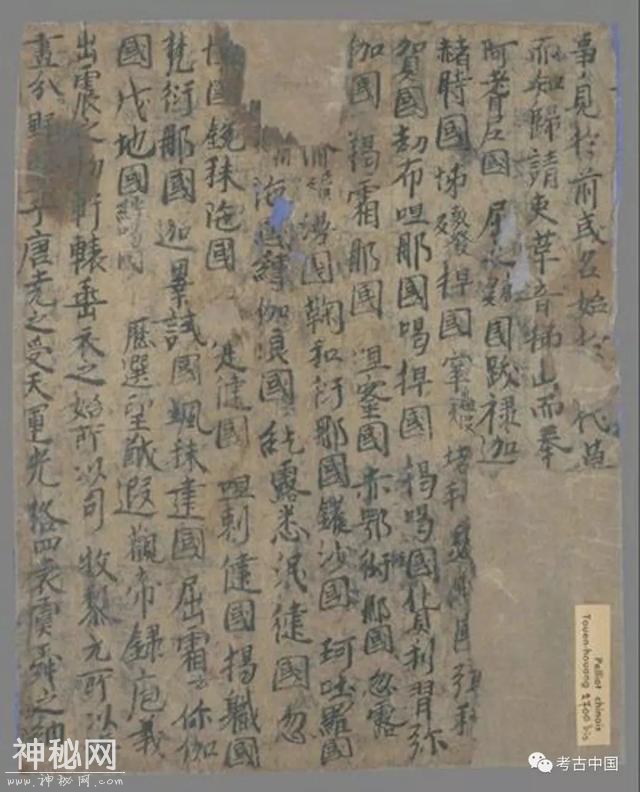 事見於前或名始於代
而知歸請吏革音梯山而奉
阿耆尼國 屈支國跋祿迦
赭時國 捍國窣
賀國劫布呾那國喝捍國 捕喝國貨利習彌
伽國 羯霜那國 呾蜜國赤鄂衍那國忽露
國鞠和衍那國鑊沙國 珂咄羅國
國縛伽浪國紇露悉泯健國忽
國銳秣陀國 健國 呾剌健國揭職國
梵衍那國迦畢試國颯秣建國屈霜你伽
國戊地國 歷選皇猷遐觀帝錄庖羲
出震之初軒轅垂衣之始所以司牧黎元所以
畫分野 唐堯之受天運光格四表虞舜之
Pelliot chinois
Touen-houang 2700 bis
神秘网
www.神秘网.com
考古中国